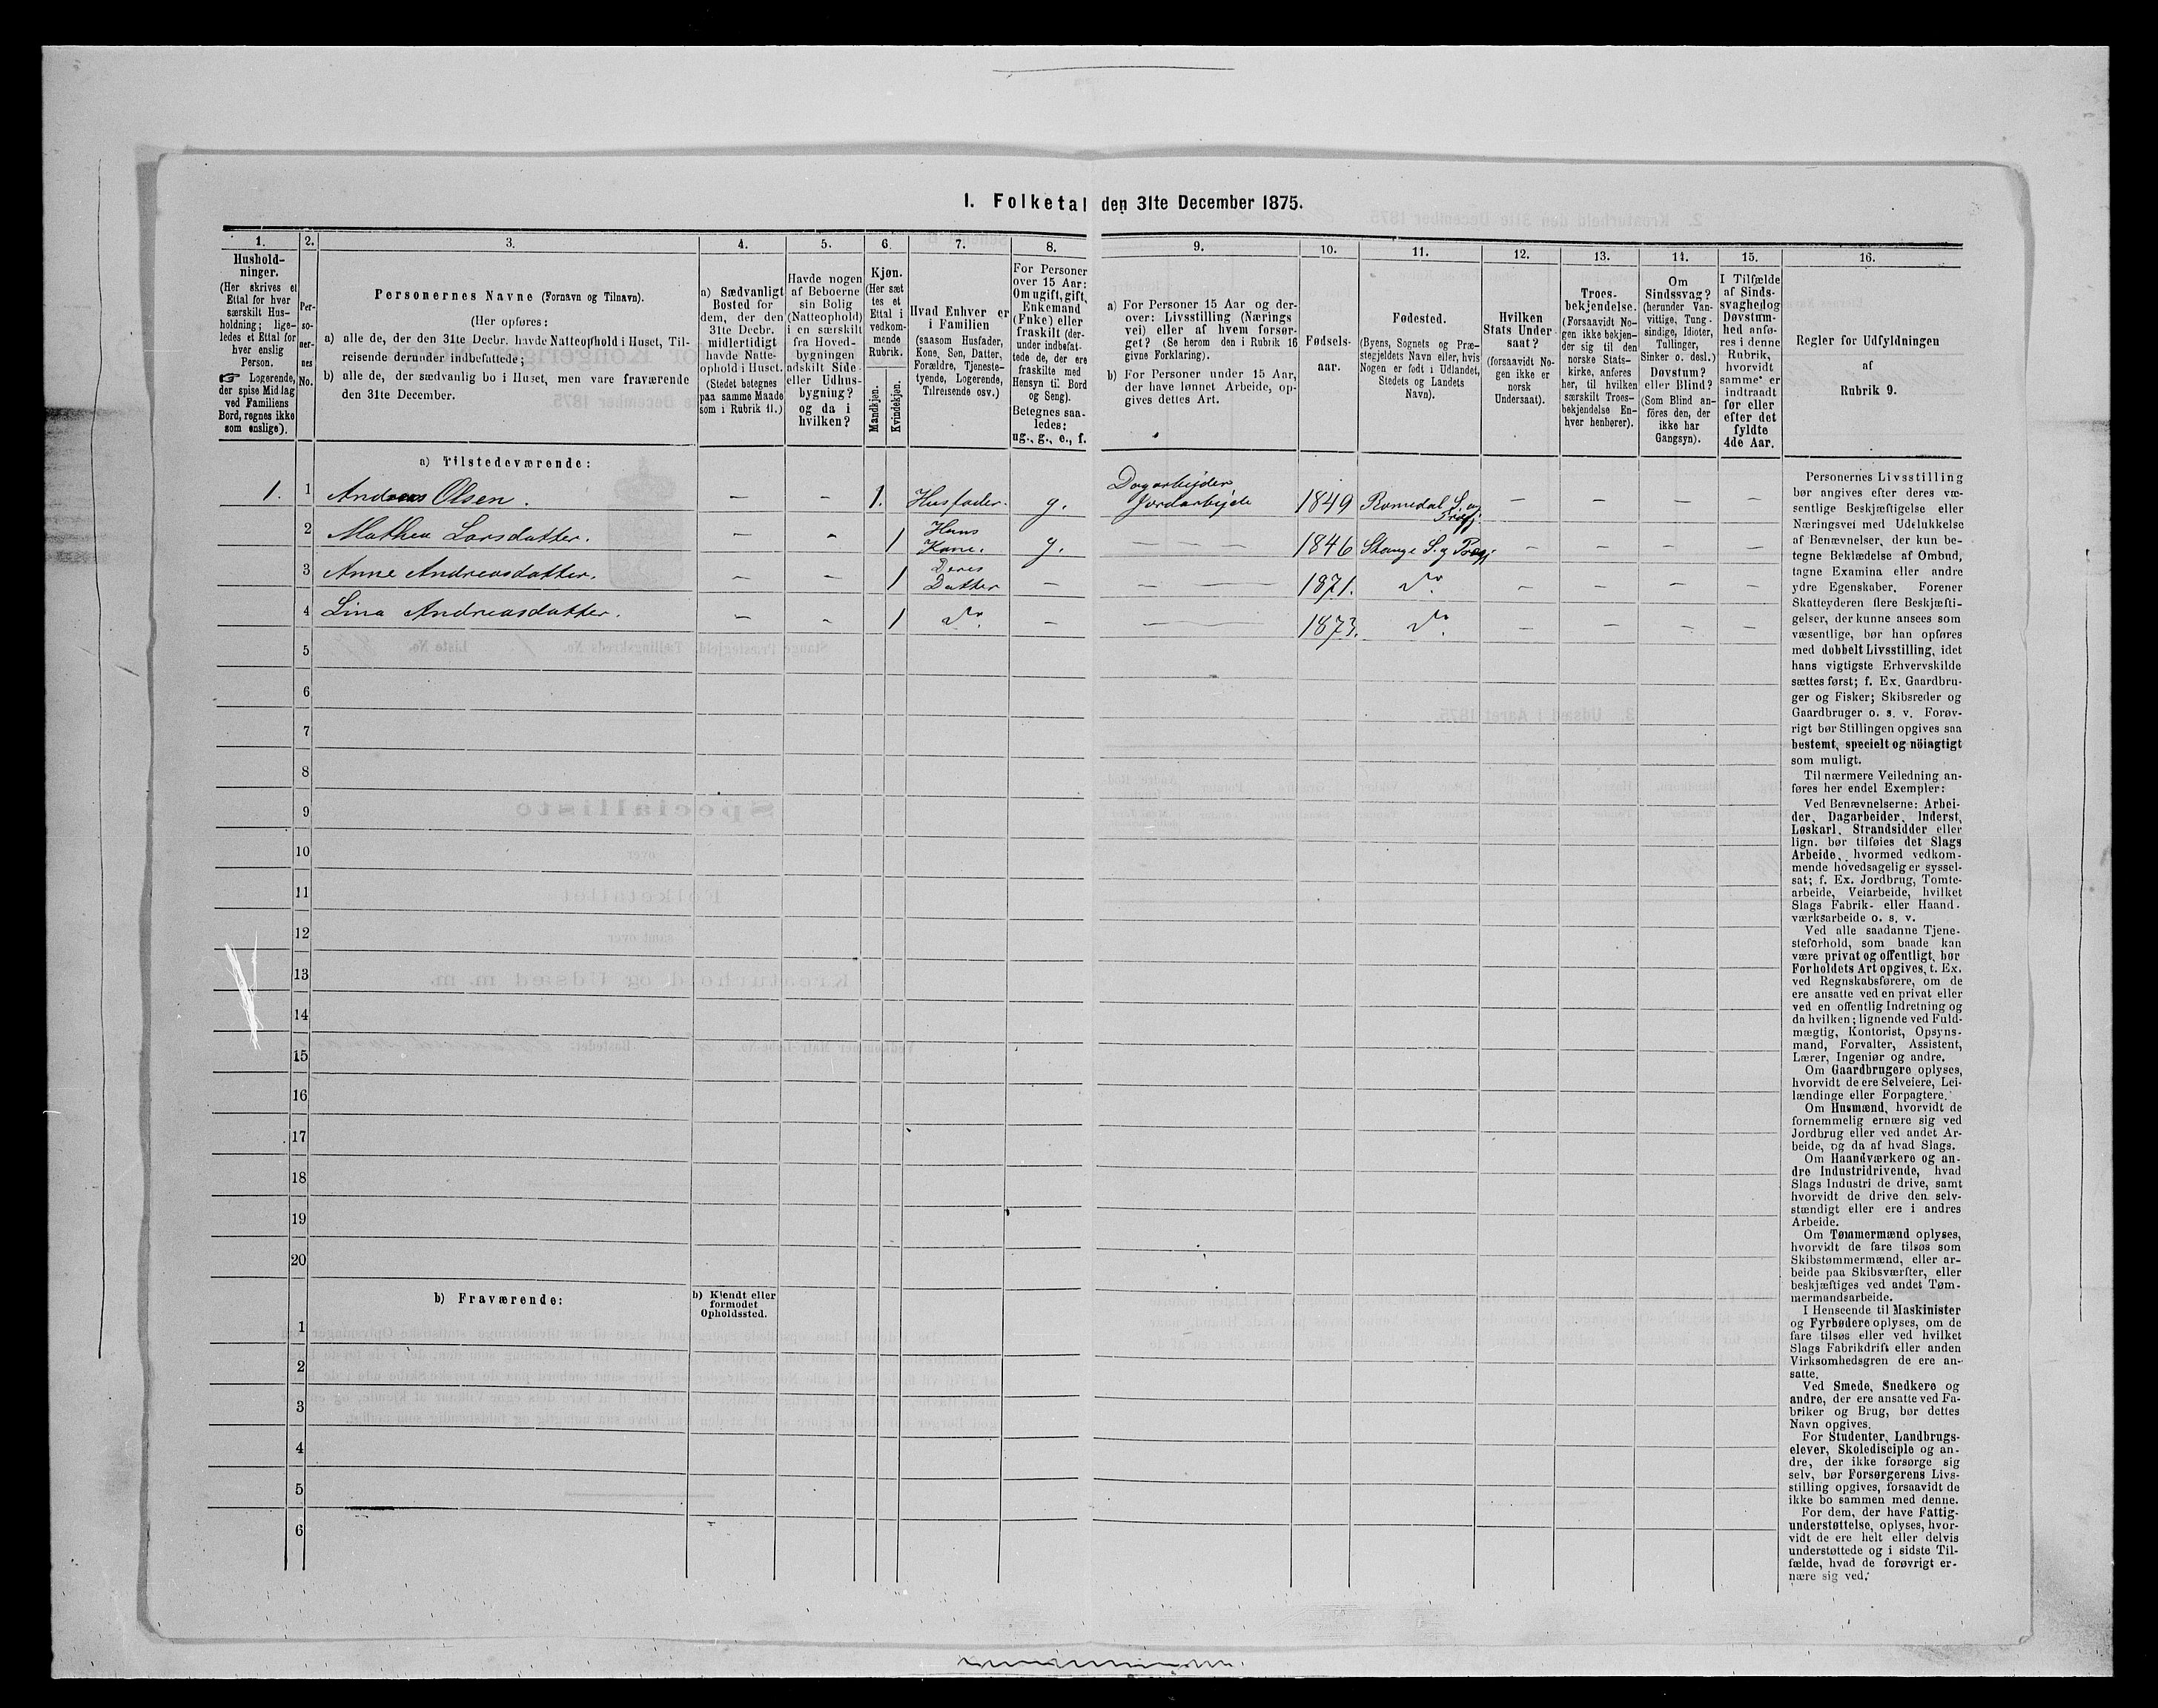 I. Folketal den 31te December 1875.
1.
Hushold-
ninger.
(Her skrives et
Ettal for hver
særskilt Hus-
holdning; lige-
ledes et Ettal for
hver enslig
Person.
☞ Logerende,
der spise Middag
ved Familiens
Bord, regnes ikke
som enslige).
2.
Per-
so-
ner-
nes
No.
3.
Personernes Navne (Fornavn og Tilnavn).
(Her opføres:
a) alle de, der den 31te Decbr. havde Natteophold i Huset, Til-
reisende derunder indbefattede;
b) alle de, der sædvanlig bo i Huset, men vare fraværende
den 31te December.
4.
a) Sædvanligt
Bosted for
dem, der den
31te Decbr.
midlertidigt
havde Natte-
ophold i Huset.
(Stedet betegnes
paa samme Maade
som i Rubrik 11.)
5.
Havde nogen
af Beboerne
sin Bolig
(Natteophold)
i en særskilt
fra Hoved-
bygningen
adskilt Side-
eller Udhus-
bygning?
og da i
hvilken?
6.
Kjøn.
(Her sæt
tes et
Ettal i
vedkom-
mende
Rubrik.
Mandkjøn.
Kvindekjøn.
7.
Hvad Enhver er
i Familien
(saasom Husfader,
Kone, Søn, Datter,
Forældre, Tjeneste-
tyende, Logerende,
Tilreisende osv.)
8.
For Personer
over 15 Aar:
Om ugift, gift,
Enkemand
(Enke) eller
fraskilt (der-
under indbefat-
tede de, der ere
fraskilte med
Hensyn til Bord
og Seng).
Betegnes saa-
ledes:
ug., g., e., f.
9.
a) For Personer 15 Aar og der-
over: Livsstilling (Nærings
vei) eller af hvem forsør-
get? (Se herom den i Rubrik 16
givne Forklaring).
b) For Personer under 15 Aar,
der have lønnet Arbeide, op-
gives dettes Art.
10.
Fødsels-
aar.
11.
Fødested.
(Byens, Sognets og Præ-
stegjeldets Navn eller, hvis
Nogen er født i Udlandet,
Stedets og Landets
Navn).
12.
Hvilken
Stats Under-
saat?
(forsaavidt No-
gen ikke er
norsk
Undersaat).
13.
Troes-
bekjendelse.
(Forsaavidt No-
gen ikke bekjen-
der sig til den
norske Stats-
kirke, anføres
her, til hvilken
særskilt Troes-
bekjendelse En-
hver henhører).
14.
Om
Sindssvag?
(herunder Van-
vittige, Tung-
sindige, Idioter,
Tullinger,
Sinker o. desl.)
Døvstum?
eller Blind?
(Som Blind an-
føres den, der
ikke har
Gangsyn).
15.
I Tilfælde
af Sinds-
svaghed og
Døvstum-
hed anfø-
res i denne
Rubrik,
hvorvidt
samme er
indtraadt
før eller
efter det
fyldte
4de Aar.
16.
Regler for Udfyldningen
af
Rubrik 9.
a) Tilstedeværende:
1. 1 Andreas Olsen. – – 1. Husfader. g. Dagarbejder Jordarbejde 1849 Romedal S. og Præstgj. – – – –
2 Mathea Larsdatter. – – 1 Hans Kone. g. – – – 1846 Stange S. og Præstgj. – – – –
3 Anne Andreasdatter. – – 1 Deres Datter – – – 1871. do. – – – –
4 Lina Andreasdatter. – – 1 do. – – – 1873. do. – – – –
5
6
7
8
9
10
11
12
13
14
15
16
17
18
19
20
b) Fraværende:
b) Kjendt eller
formodet
Opholdssted.
1
2
3
4
5
6
Personernes Livsstilling
bør angives efter deres væ-
sentlige Beskjæftigelse eller
Næringsvei med Udelukkelse
af Benævnelser, der kun be-
tegne Beklædelse af Ombud,
tagne Examina eller andre
ydre Egenskaber. Forener
Skatteyderen flere Beskjæfti-
gelser, der kunne ansees som
væsentlige, bør han opføres
med dobbelt Livsstilling, idet
hans vigtigste Erhvervskilde
sættes først; f. Ex. Gaardbru-
ger og Fisker; Skibsreder og
Gaardbruger o. s. v. Forøv-
rigt bør Stillingen opgives saa
bestemt, specielt og nöiagtigt
som muligt.
Til nærmere Veiledning an-
føres her endel Exempler:
Ved Benævnelserne: Arbei-
der, Dagarbeider, Inderst,
Løskarl, Strandsidder eller
lign. bør tilføies det Slags
Arbeide, hvormed vedkom-
mende hovedsagelig er syssel-
sat; f. Ex. Jordbrug, Tomte-
arbeide, Veiarbeide, hvilket
Slags Fabrik- eller Haand-
værksarbeide o. s. v.
Ved alle saadanne Tjene-
steforhold, som baade kan
være privat og offentligt, bør
Forholdets Art opgives, t. Ex.
ved Regnskabsførere, om de
ere ansatte ved en privat eller
ved en offentlig Indretning og
da hvilken; lignende ved Fuld-
mægtig, Kontorist, Opsyns-
mand, Forvalter, Assistent,
Lærer, Ingeniør og andre.
Om Gaardbrugere oplyses,
hvorvidt de ere Selveiere, Lei-
lændinge eller Forpagtere.
Om Husmænd, hvorvidt de
fornemmelig ernære sig ved
Jordbrug eller ved andet Ar-
beide, og da af hvad Slags.
Om Haandværkere og an-
dre Industridrivende, hvad
Slags Industri de drive, samt
hvorvidt de drive den selv-
stændigt eller ere i andres
Arbeide.
Om Tømmermænd oplyses,
hvorvidt de fare tilsøs som
Skibstømmermænd, eller ar-
beide paa Skibsværfter, eller
beskjæftiges ved andet Tøm-
mermandsarbeide.
I Henseende til Maskinister
og Fyrbødere oplyses, om de
fare tilsøs eller ved hvilket
Slags Fabrikdrift eller anden
Virksomhedsgren de ere an-
satte.
Ved Smede, Snedkere og
andre, der ere ansatte ved Fa-
briker og Brug, bør dettes
Navn opgives.
For Studenter, Landbrugs-
elever, Skoledisciple og an-
dre, der ikke forsørge sig
selv, bør Forsørgerens Livs-
stilling opgives, forsaavidt de
ikke bo sammen med denne.
For dem, der have Fattig-
understøttelse, oplyses, hvor-
vidt de ere helt eller delvis
understøttede og i sidste Til-
fælde, hvad de forøvrigt er-
nære sig ved.